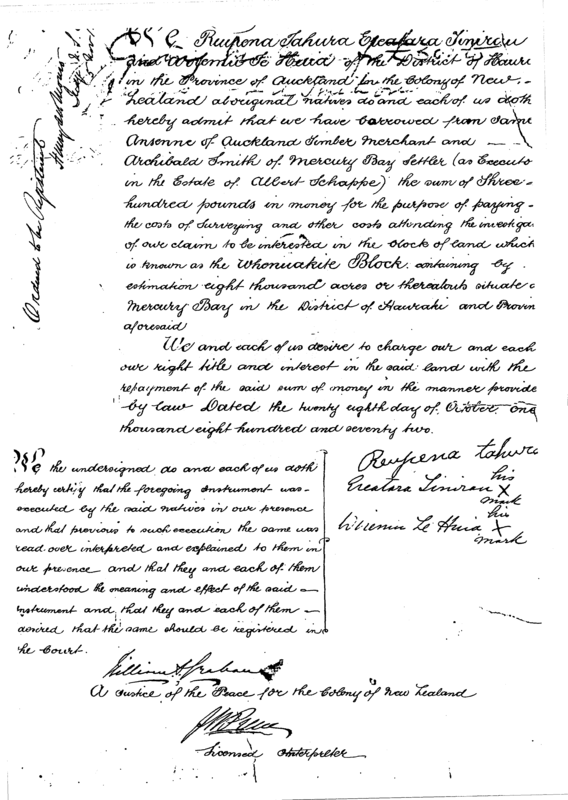 We Reupena Tahura Ereatara Tinirau
and Wiremu Te Huia of the District of Haura
in the Province of Auckland in the Colony of New
Zealand aboriginal natives do and each of us doth
hereby admit that we have borrowed from Jame
Ansenne of Auckland Timber Merchant and
Archibald Smith of Mercury Bay Settler (as Executo
in the Estate of Albert Schappe) the sum of Three
hundred pounds in money for the purpose of paying
the costs of surveying and other costs attending the investiga
of our claim to be interested in the block of land which
is known as the Whenuakite Block containing by
estimation eight thousand acres or thereabouts situate
Mercury Bay in the District of Hauraki and Provin
aforesaid
We and each of us desire to charge our and each
our right title and interest in the said land with the
repayment of the said sum of money in the manner provide
by law Dated the twenty eighth day of October one
thousand eight hundred and seventy two.
Reupena tahura
his
Ereatara Tinirau X
mark
his
Wiremu Te Huia X
mark
We the undersigned do and each of us doth
hereby certify that the foregoing Instrument was
executed by the said natives in our presence
and that previous to such execution the same was
read over interpreted and explained to them in
our presence and that they and each of them
understood the meaning and effect of the said
instrument and that they and each of them
desired that the same should be registered in
he Court.
A Justice of the Peace for the Colony of New Zealand
Licensed Interpreter
Ordered to be Registered